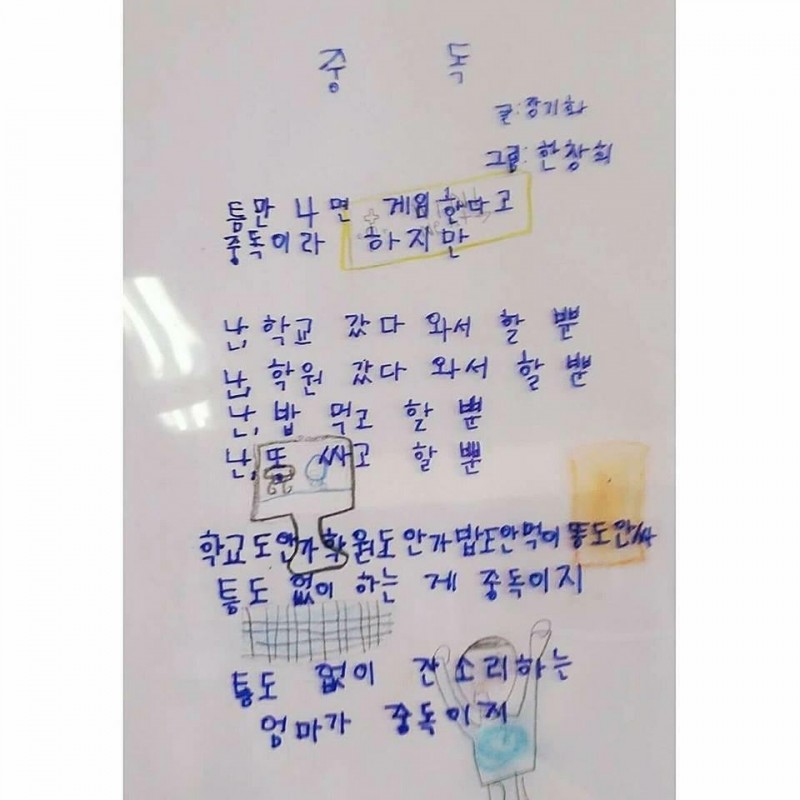 중 독
글:장기화
그림:한창희
틈만 나면 게임한다고
중독이라 하지만
난, 학교 갔다 와서 할 뿐
난, 학원 갔다 와서 할 뿐
난, 밥 먹고 할 뿐
난, 또 싸고 할 뿐
학교도안가학원도안가밥도안먹어똥도안싸
틈도 없이 하는 게 중독이지
틈도 없이 잔소리하는
엄마가 중독이지